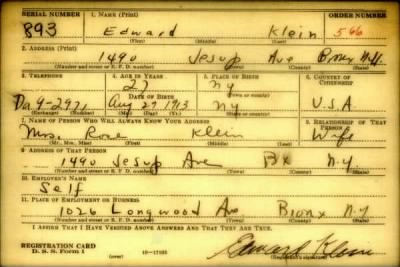 SERIAL NUMBER 1. NAME (Print) ORDER NUMBER
893 Edward Klein 566
(First) (Middle) (Last)
2. ADDRESS (Print)
1490 Jesup Ave Bronx N.Y.
(Number and street or R. F. D. number) (Town) (County) (State)
3. TELEPHONE 4. AGE IN YEARS 5. PLACE OF BIRTH 6. COUNTRY OF CITIZENSHIP
27 NY
(Town or county)
Da 9-2971 Aug 27 1913 NY U.S.A
(Exchange) (Number) (Mo.) (Day) (Yr.) (State or country)
7. NAME OF PERSON WHO WILL ALWAYS KNOW YOUR ADDRESS 8. RELATIONSHIP OF THAT PERSON
Mrs. Rose Klein Wife
(Mr., Mrs., Miss) (First) (Middle) (Last)
9. ADDRESS OF THAT PERSON
1490 Jesup Ave Bx N.Y.
(Number and street or R. F. D. number) (Town) (County) (State)
10. EMPLOYER'S NAME
Self
11. PLACE OF EMPLOYMENT OR BUSINESS
1026 Longwood Ave Bronx N.Y.
(Number and street or R. F. D. number) (Town) (County) (State)
I AFFIRM THAT I HAVE VERIFIED ABOVE ANSWERS AND THAT THEY ARE TRUE.
REGISTRATION CARD
D. S. S. Form 1 Edward Klein
(Registrant's signature)